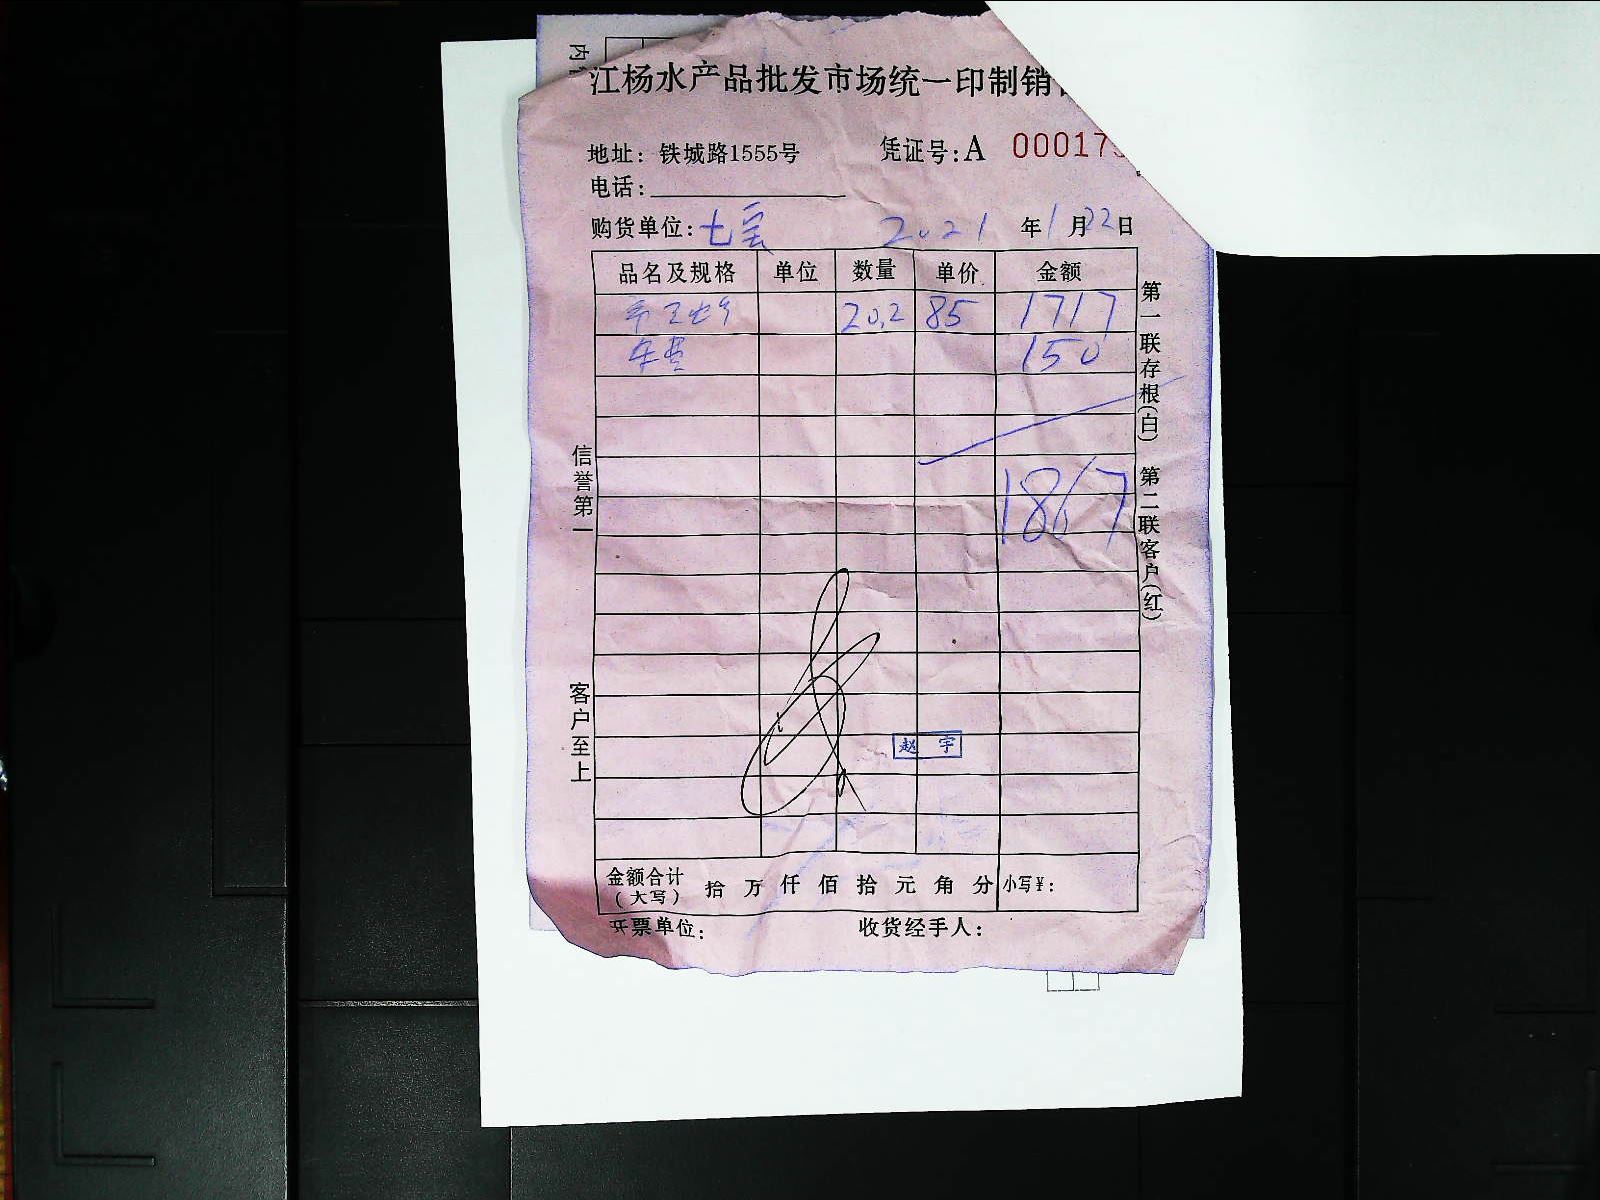 江杨水产品批发市场统一印制销
地址：铁城路1555号 凭证号：A 00017
电话：
购货单位：七宝 2021 年 1 月 22 日
品名及规格 单位 数量 单价 金额
20.2 85 1717
车费 150
1867
赵宇
金额合计（大写） 拾 万 仟 佰 拾 元 角 分 小写¥：
开票单位： 收货经手人：
信誉第一
客户至上
第一联存根(白) 第二联客户(红)
内